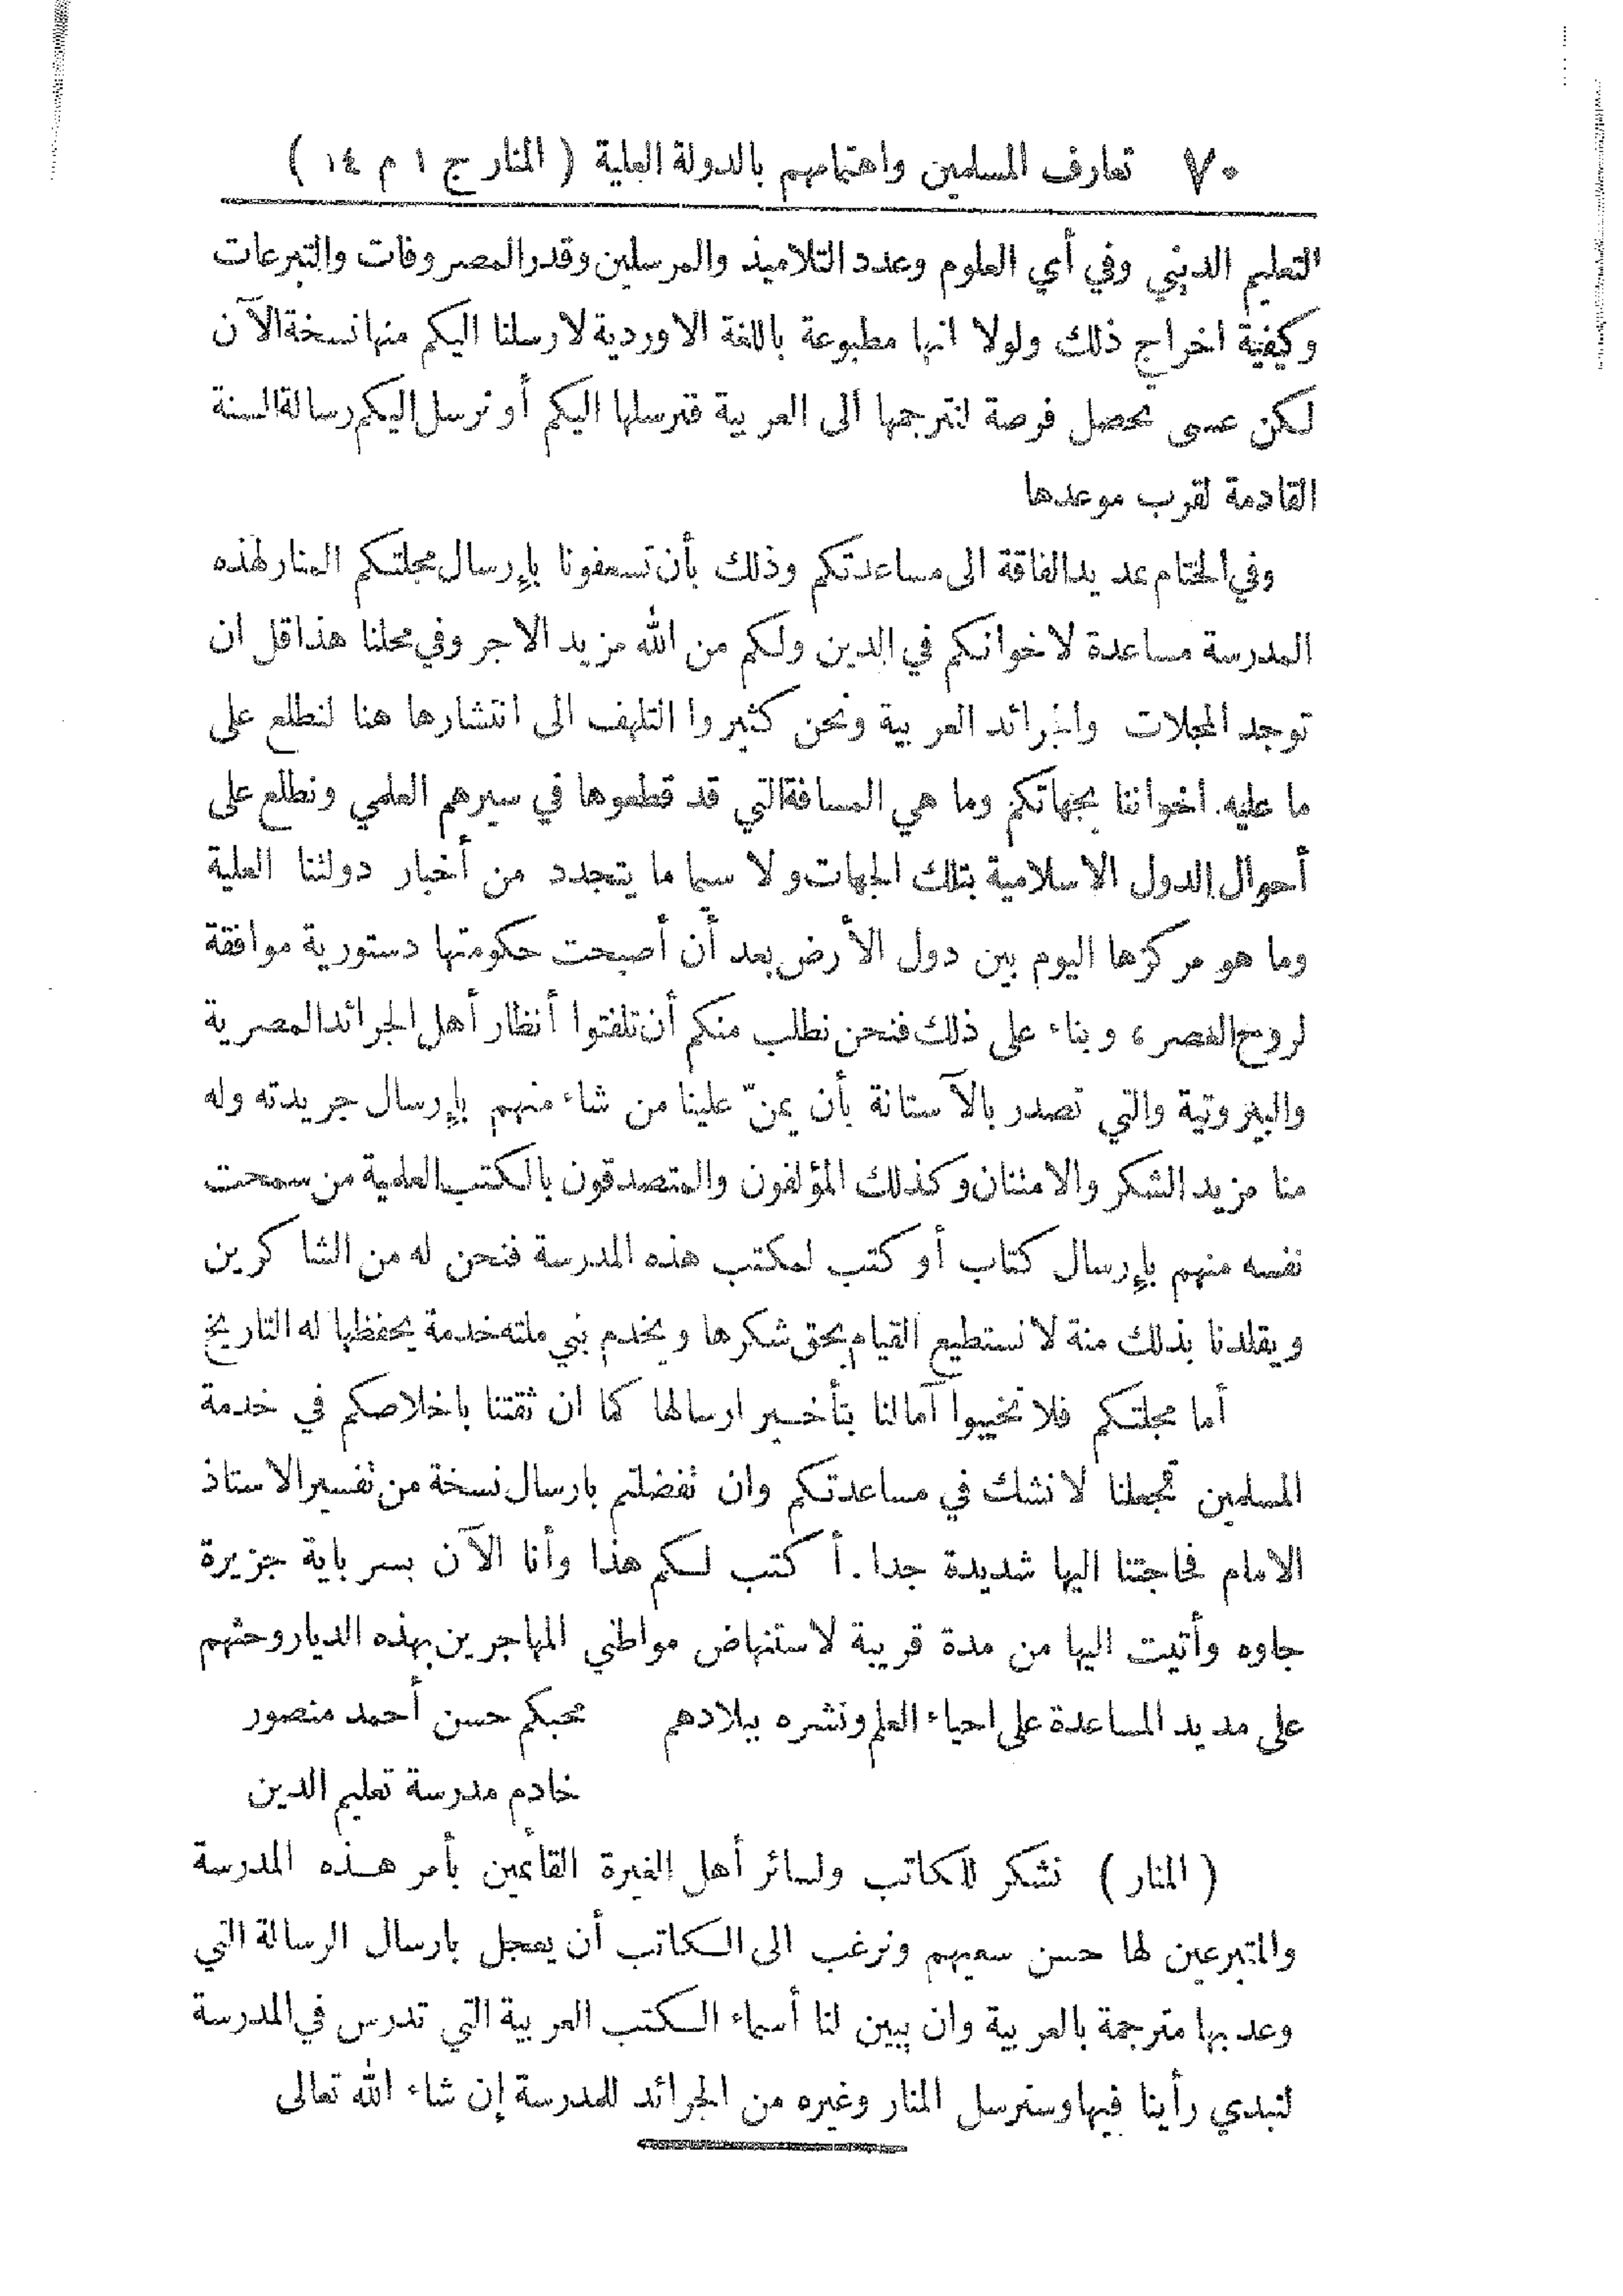 ٧٠ تعارف المسلمين واهتمامهم بالدولة العلية ( المنار ج ١ م ١٤ )
التعليم الديني وفي أي العلوم وعدد التلاميذ والمرسلين وقدر المصروفات والتبرعات
وكيفية اخراج ذلك ولولا انها مطبوعة باللغة الاوردية لارسلنا اليكم منها نسخة الآن
لكن عسى تحصل فرصة لنترجمها الى العربية فنرسلها اليكم أو نرسل اليكم رسالة السنة
القادمة لقرب موعدها
وفي الختام عديد الفاقة الى مساعدتكم وذلك بأن تسعفونا بإرسال مجلتكم المنار لهذه
المدرسة مساعدة لاخوانكم في الدين ولكم من الله مزيد الاجر وفي محلنا هذا قل ان
توجد المجلات والجرائد العربية ونحن كثيروا التلهف الى انتشارها هنا لنطلع على
ما عليه اخواننا بجهاتكم وما هي المسافة التي قد قطعوها في سيرهم العلمي ونطلع على
أحوال الدول الاسلامية بتلك الجهات ولا سيما ما يتجدد من أخبار دولتنا العلية
وما هو مركزها اليوم بين دول الأرض بعد أن أصبحت حكومتها دستورية موافقة
لروح العصر ، وبناء على ذلك فنحن نطلب منكم أن تلفتوا أنظار أهل الجرائد المصرية
والبيروتية والتي تصدر بالآستانة بأن يمنّ علينا من شاء منهم بإرسال جريدته وله
منا مزيد الشكر والامتنان وكذلك المؤلفون والمتصدقون بالكتب العلمية من سمحت
نفسه منهم بإرسال كتاب أو كتب لمكتب هذه المدرسة فنحن له من الشاكرين
ويقلدنا بذلك منة لا نستطيع القيام بحق شكرها ويخدم بني ملته خدمة يحفظها له التاريخ
أما مجلتكم فلا تخيبوا آمالنا بتأخير ارسالها كما ان ثقتنا باخلاصكم في خدمة
المسلمين تجعلنا لا نشك في مساعدتكم وان تفضلتم بارسال نسخة من تفسير الاستاذ
الامام فحاجتنا اليها شديدة جدا . أكتب لكم هذا وأنا الآن بسرباية جزيرة
جاوه وأتيت اليها من مدة قريبة لاستنهاض مواطني المهاجرين بهذه الديار وحثهم
على مد يد المساعدة على احياء العلم ونشره ببلادهم محبكم حسن أحمد منصور
خادم مدرسة تعليم الدين
( المنار ) نشكر للكاتب ولسائر أهل الغيرة القائمين بأمر هذه المدرسة
والمتبرعين لها حسن سعيهم ونرغب الى الكاتب أن يعجل بارسال الرسالة التي
وعد بها مترجمة بالعربية وان يبين لنا أسماء الكتب العربية التي تدرس في المدرسة
لنبدي رأينا فيها وسنرسل المنار وغيره من الجرائد للمدرسة إن شاء الله تعالى